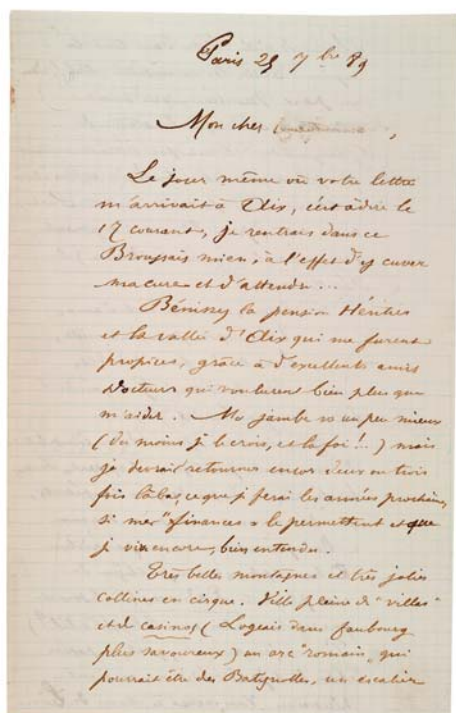 Paris 25 7bre 89
Mon cher ,
Le jour même où votre lettre
m'arrivait à Aix, c'est à dire le
17 courant, je rentrais dans ce
Broussais mien, à l'effet d'y cuver
ma cure et d'attendre...
Bénissez la pension Héritier
et la vallée d'Aix qui me furent
propices, grâce à d'excellents amis
docteurs qui voulurent bien plus que
m'aider. Ma jambe va un peu mieux
(du moins je le crois, et la foi!..) mais
je devrai retourner encor deux ou trois
fois là bas, ce que je ferai les années prochaines
si mes "finances" le permettent et que
je vive encore, bien entendu.
Très belles montagnes et très jolies
collines en cirque. Ville pleine de "villas"
et de casinos (Logeais dans faubourg
plus savoureux) un arc "romain" qui
pourrait être des Batignolles, un escalier